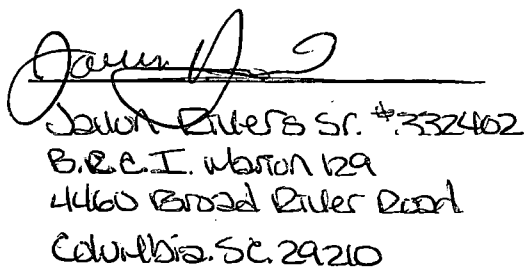 Javon Rivers Sr. #.332402
B.R.C.I. Marion 129
4460 Broad River Road
Columbia. SC. 29210